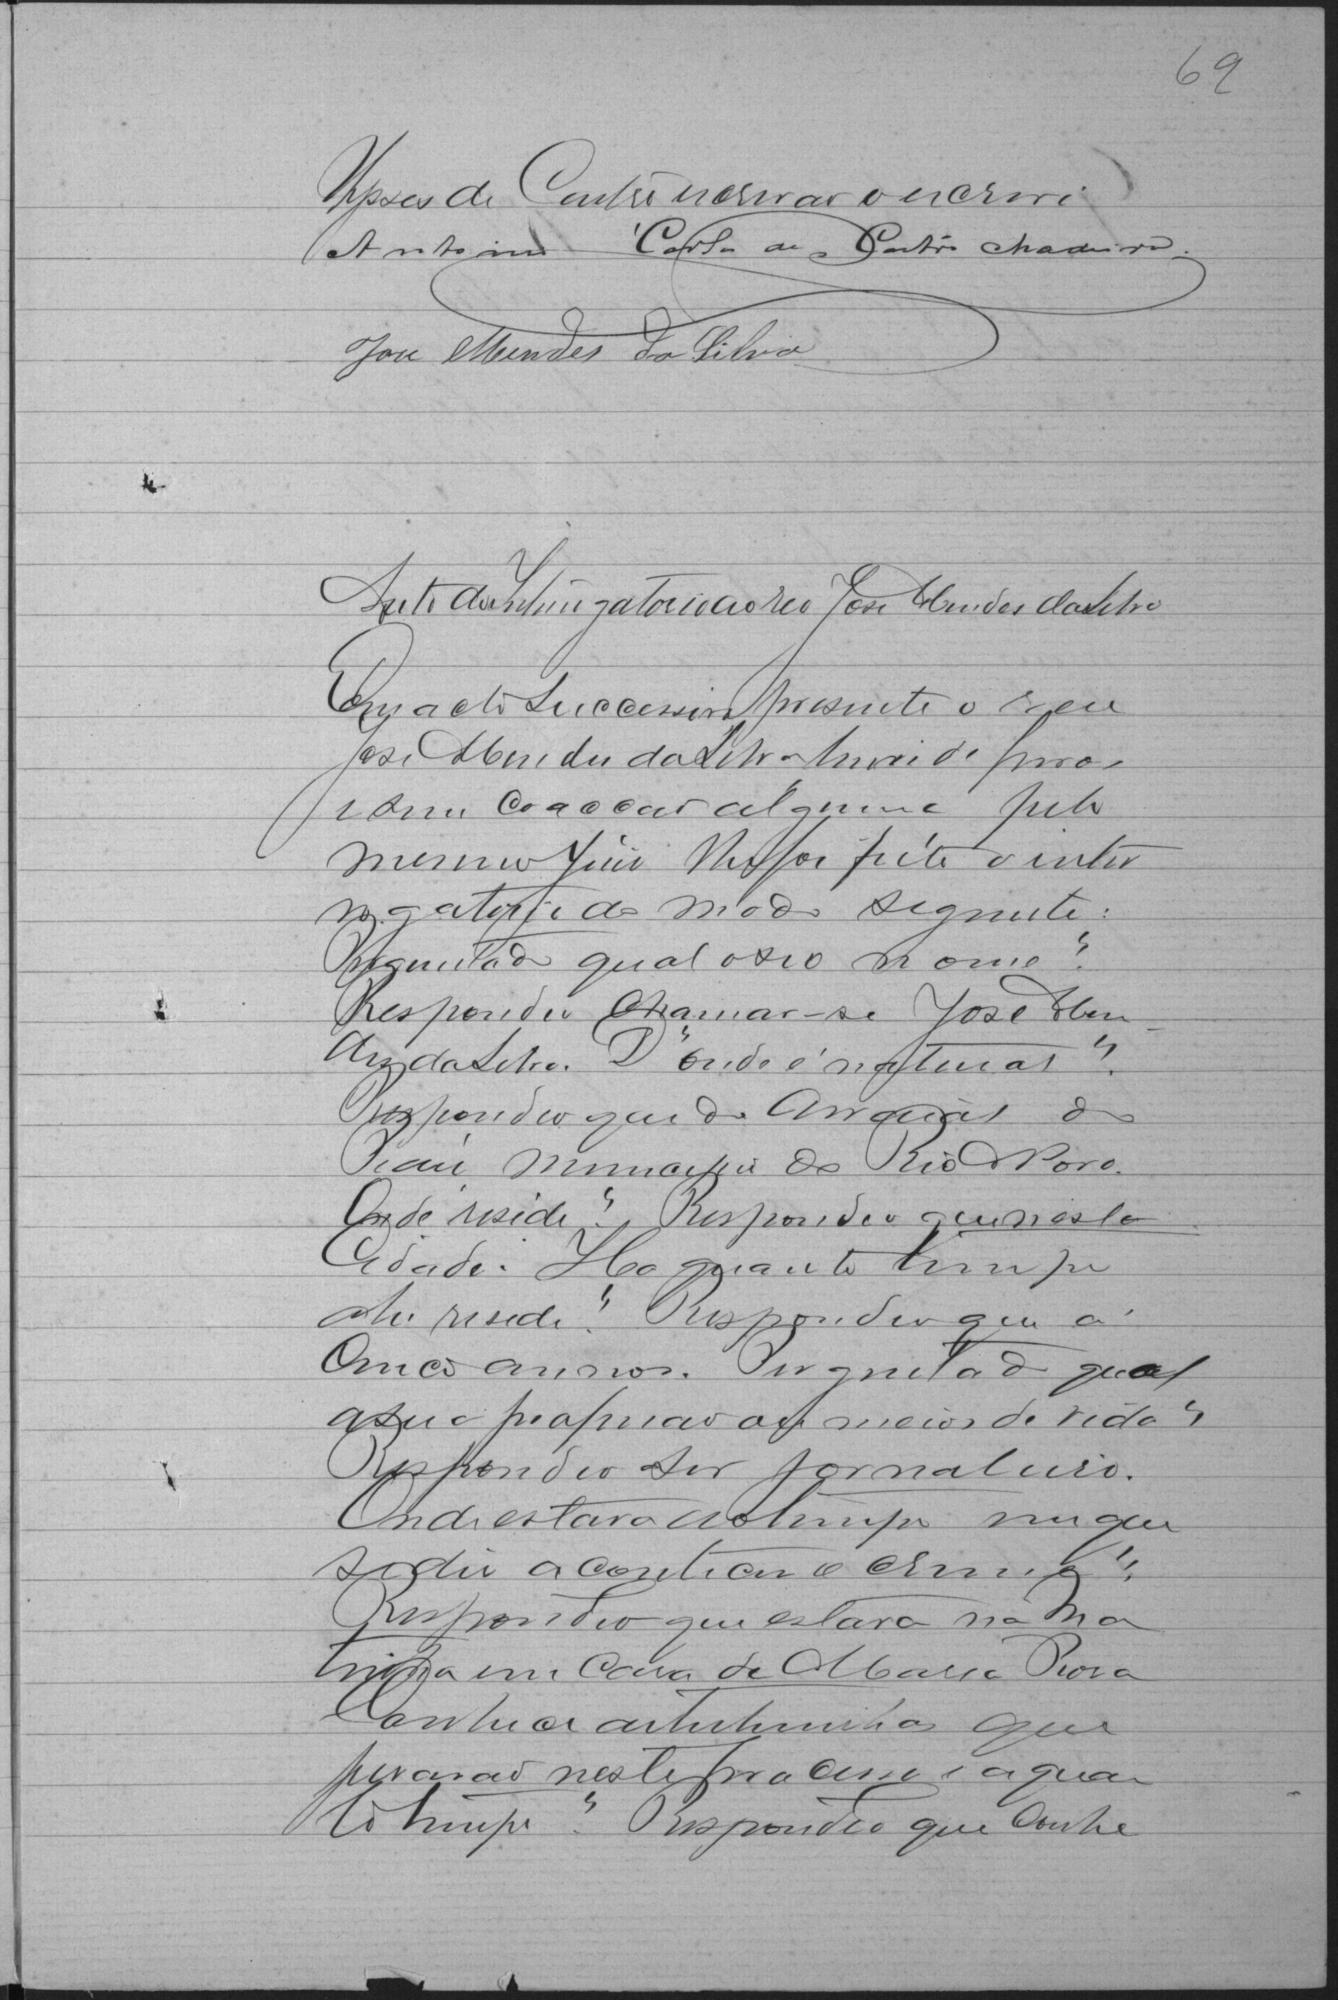 69
de Castro escrivão o escrevi
Antonio Costa de Castro Madeira.
José Mendes da Silva
Auto de Interrogatorio ao reo José Mendes da Silva
Em acto successivo presente o reu
José Mendes da Silva livre de ferros
e sem coaccao alguma pelo
mesmo Juiz lhe foi feito o inter
rogatorio do modo seguinte:
Perguntado qual o seo nome?
Respondeu chamar-se José Men
des da Silva. D'onde é natural?
Respondeo que do Arraial do
Piau municipio do Rio Novo.
Onde reside? Respondeo que nesta
Cidade. Ha quanto tempo
ahi reside? Respondeo que a
cinco annos. Perguntado qual
a sua profissao ou meios de vida?
Respondeo ser jornaleiro.
Onde estava ao tempo em que
se diz acontecer o crime?
Respondeo que estava na Ma
em casa de Maria Rosa
Conhece as testemunhas que
jurarão neste processo e a quan
to tempo? Respondeo que conhe